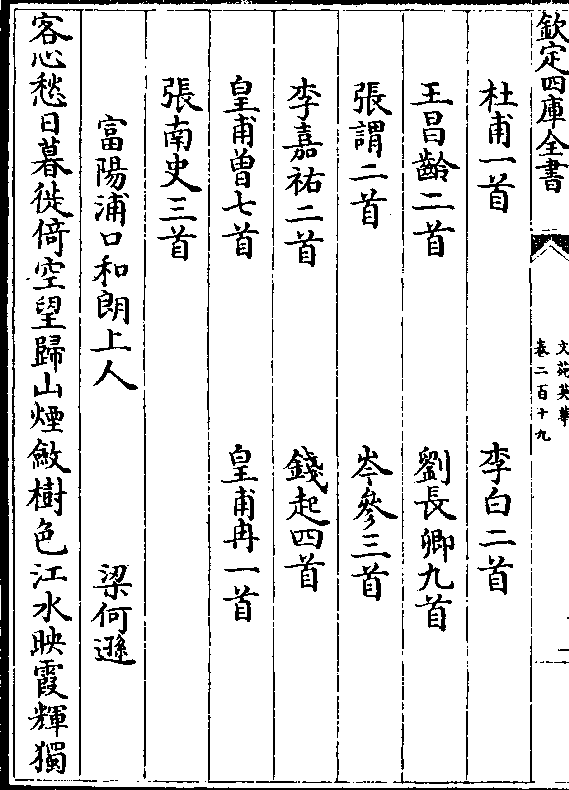 欽定四庫全書
文苑英華
卷二百十九
杜甫一首 李白二首
王昌齡二首 劉長卿九首
張謂二首 岑參三首
李嘉祐二首 錢起四首
皇甫曽七首 皇甫冉一首
張南史三首
富陽浦口和朗上人 梁何遜
客心愁日暮徙倚空望歸山煙斂樹色江水映霞輝獨